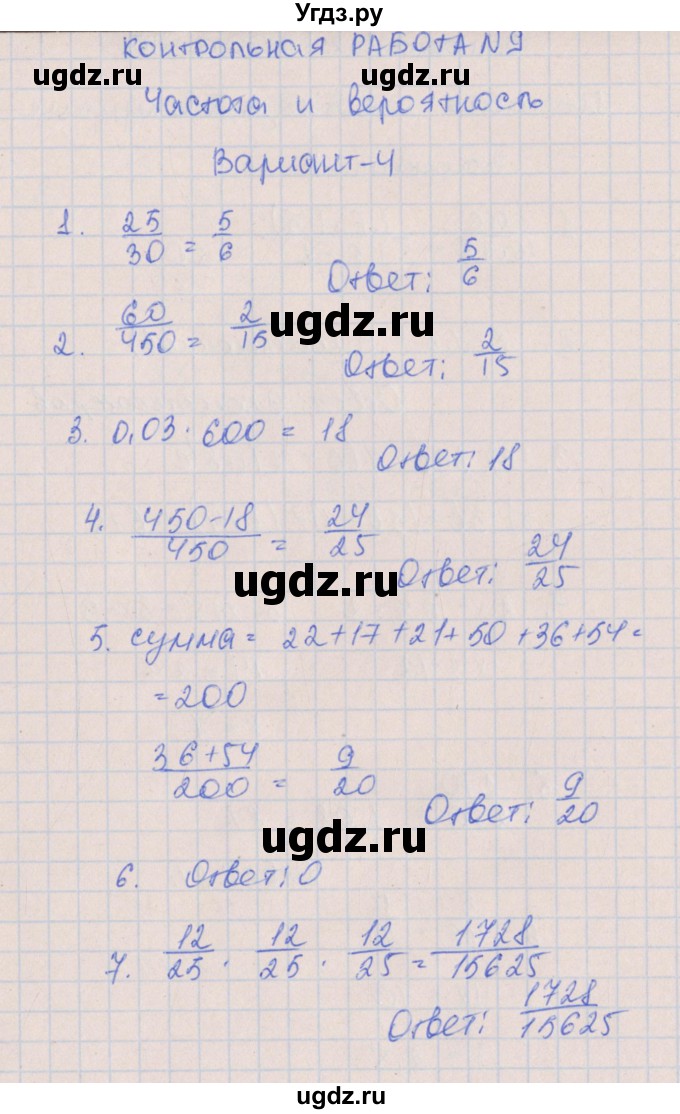 Угдз.ру
КОНТРОЛЬНАЯ РАБОТА N9
ugdz.ru ugdz.ru
Частота и вероятность
Вариант-4
1. 25/30 = 5/6
Ответ: 5/6
2. 60/450 = 2/15
ugdz.ru
Ответ: 2/15
3. 0,03 · 600 = 18
Ответ: 18
4. 450-18/450 = 24/25
Ответ: 24/25
ugdz.ru
5. сумма = 22+17+21+50+36+54=
=200
36+54/200 = 9/20
Ответ: 9/20
ugdz.ru
6. Ответ: 0
7. 12/25 · 12/25 · 12/25 = 1728/15625
Ответ: 1728/15625
ugdz.ru